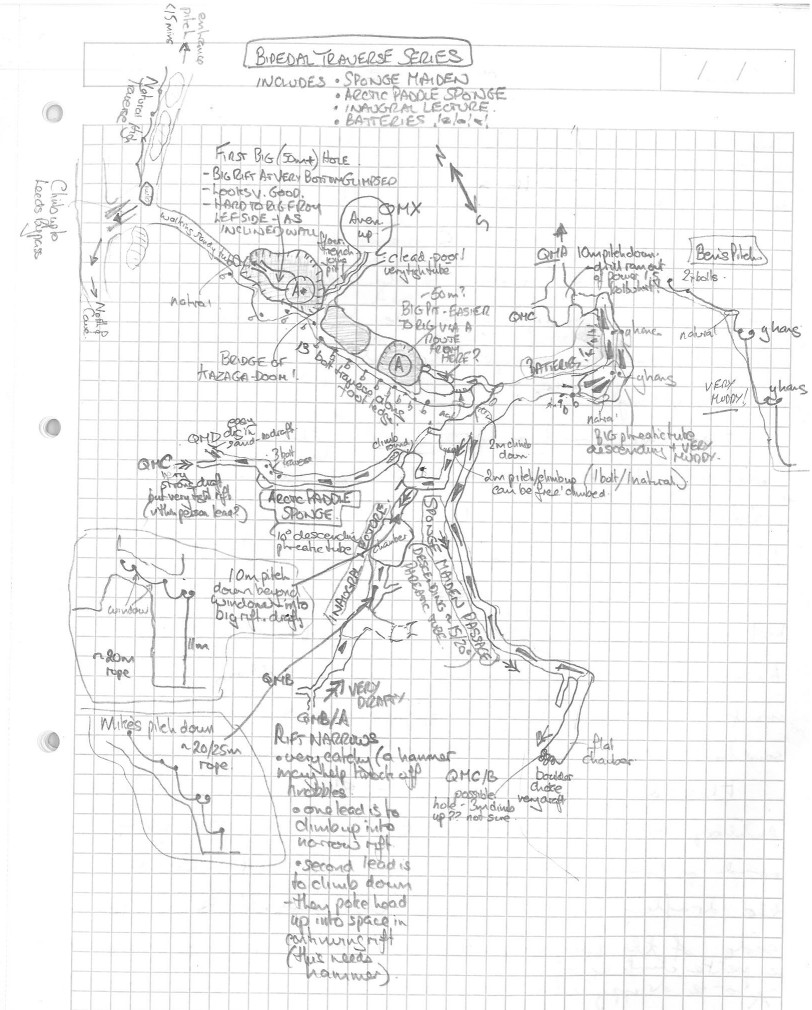 entrance
pitch
<15 mins
BIPEDAL TRAVERSE SERIES
INCLUDES • SPONGE MAIDEN
• ARCTIC PADDLE SPONGE
• INAUGRAL LECTURE.
• BATTERIES
Natural
Traverse
Climb up to
Leeds Bypass
FIRST BIG (50m+) HOLE
- BIG RIFT AT VERY BOTTOM GLIMPSED
- LOOKS V. GOOD.
- HARD TO RIG FROM
LEFT SIDE - AS
INCLINED WALL
N
S
Aven
up
QMX
walking sandy
natural
c lead - poor!
very tight tube
~50m?
BIG PIT - EASIER
TO RIG VIA A
ROUTE
FROM
HERE?
A
A
QMA
10m pitch down
drill ran out
of power
QMC
Ben's Pitch
2 bolts
natural
y hang
y hang
VERY
MUDDY!
BRIDGE OF
KAZAGA-DOOM!
13
bolt traverse
BATTERIES
y hang
y hang
natural
BIG phreatic tube
descending VERY
MUDDY.
2m climb
down
2m pitch/climb up (1 bolt/natural)
can be 'free' climbed
climb
QMD
easy
dig in
sand - no draft
3 bolt
traverse
QMC
very
strong draft
but very tight rift
ARCTIC PADDLE
SPONGE
10° descending
phreatic tube
chamber
INAUGRAL LECTURE
SPONGE MAIDEN PASSAGE
DESCENDING ~ 15/20°
PHREATIC TUBE
window
~20m
rope
11m
10m pitch
down beyond
window into
big rift. drafty
QMB
VERY
DRAFTY
Mike's pitch down
~20/25m
rope
QMB/A
RIFT NARROWS
• very catchy (a hammer
may help knock off
knobbles
• one lead is to
climb up into
narrow rift
• second lead is
to climb down
- then poke head
up into space in
continuing rift
(this needs
hammer)
QMC/B
possible
hole - 3m climb
up?? not sure
flat
chamber
boulder
choke
very draft